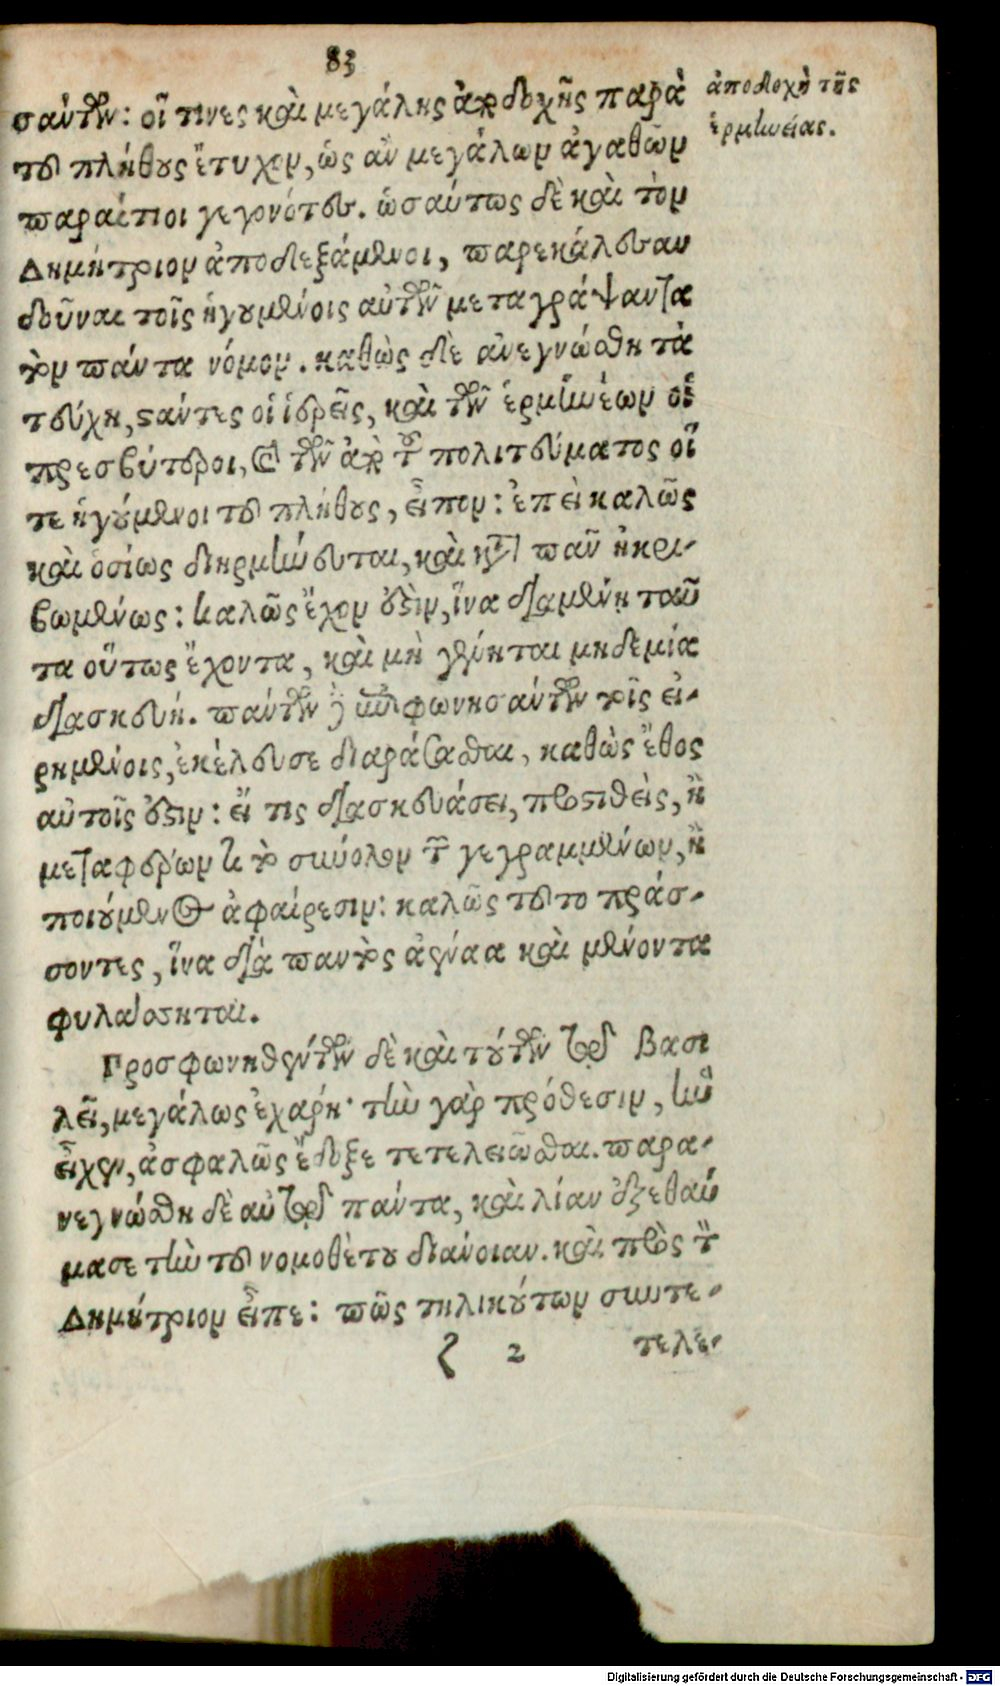 83
σάντων: οἵ τινες καὶ μεγάλης ἀποδοχῆς παρὰ
τοῦ πλήθους ἔτυχον, ὡς ἂν μεγάλων ἀγαθῶν
παραίτιοι γεγονότες. ὡσαύτως δὲ καὶ τὸν
Δημήτριον ἀποδεξάμενοι, παρεκάλεσαν
δοῦναι τοῖς ἡγουμένοις αὐτῶν μεταγράψαντα
τὸν πάντα νόμον. καθὼς δὲ ἀνεγνώσθη τὰ
τεύχη, στάντες οἱ ἱερεῖς, καὶ τῶν ἑρμηνέων οἱ
πρεσβύτεροι, καὶ τῶν ἀπὸ τοῦ πολιτεύματος οἵ
τε ἡγούμενοι τοῦ πλήθους, εἶπον: ἐπεὶ καλῶς
καὶ ὁσίως διηρμήνευται, καὶ κατὰ πᾶν ἠκρι-
βωμένως: καλῶς ἔχον ἐστὶν, ἵνα διαμένῃ ταῦ
τα οὕτως ἔχοντα, καὶ μὴ γένηται μηδεμία
διασκευή. πάντων δὲ ἐπιφωνησάντων τοῖς εἰ-
ρημένοις, ἐκέλευσε διαράσασθαι, καθὼς ἔθος
αὐτοῖς ἐστιν: εἴ τις διασκευάσει, προστιθεὶς, ἢ
μεταφέρων τι τὸ σύνολον τῶν γεγραμμένων, ἢ
ποιούμενος ἀφαίρεσιν: καλῶς τοῦτο πράσ-
σοντες, ἵνα διὰ παντὸς ἀένναα καὶ μένοντα
φυλάσσηται.
Προσφωνηθέντων δὲ καὶ τούτων τῷ βασι
λεῖ, μεγάλως ἐχάρη· τὴν γὰρ πρόθεσιν, ἣν
εἶχεν, ἀσφαλῶς ἔδοξε τετελειῶσθαι. παρα-
νεγνώσθη δὲ αὐτῷ πάντα, καὶ λίαν ἐξεθαύ
μασε τὴν τοῦ νομοθέτου διάνοιαν. καὶ πρὸς τὸν
Δημήτριον εἶπε: πῶς τηλικούτων συντε-
ζ 2 τελε-
ἀποδοχὴ τῆς
ἑρμηνείας.
Digitalisierung gefördert durch die Deutsche Forschungsgemeinschaft - DFG